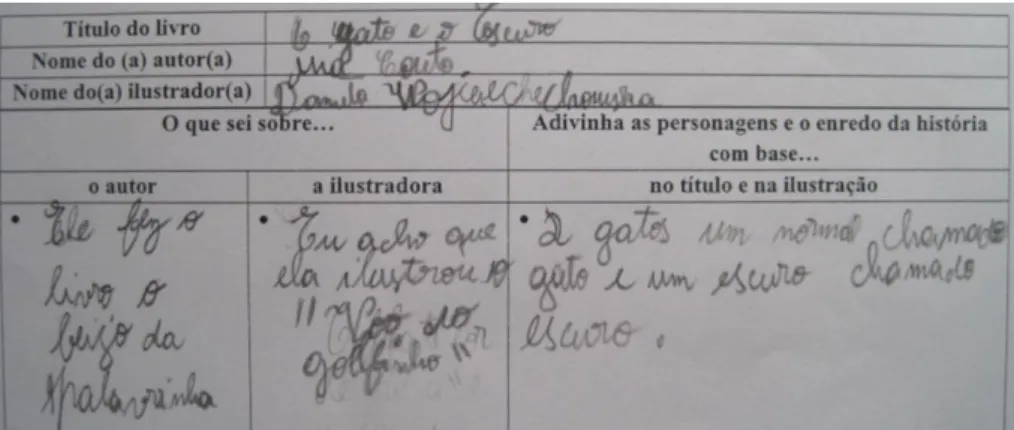 Título do livro O gato e o Escuro
Nome do (a) autor(a) Mia Couto.
Nome do(a) ilustrador(a) Danuta
O que sei sobre…
Adivinha as personagens e o enredo da história
com base…
o autor
a ilustradora
no título e na ilustração
• Ele fez o
livro o
beijo da
palavrinha
• Eu acho que
ela ilustrou o
"Voo do
golfinho"
• 2 gatos um normal chamado
gato e um escuro chamado
escuro.